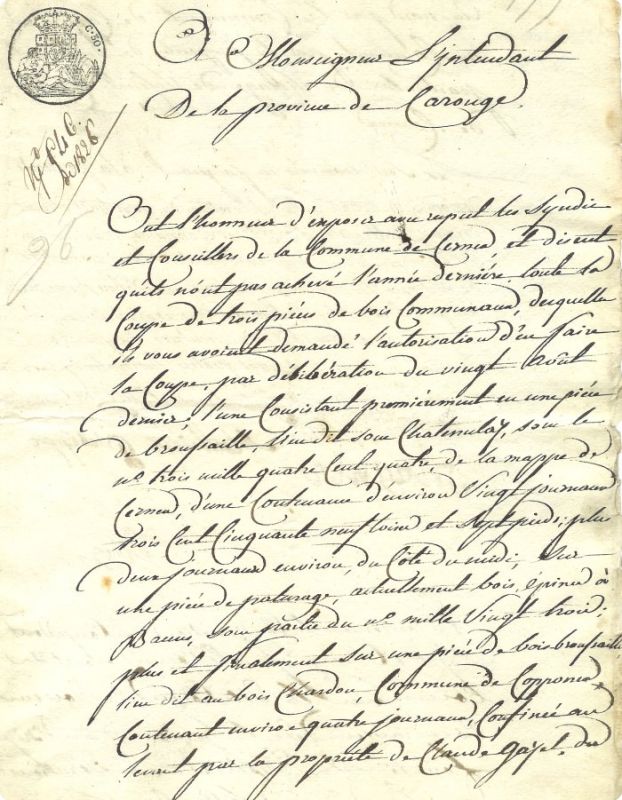 C. 50.
A Monseigneur L'jntendant
De la province de Carouge.
Nº 546.
1826
96
Ont l'honneur d'exposer avec respect les Syndic
et Conseillers de la Commune de Cernex et disent
qu'ils n'ont pas achevé l'année dernière, toute la
Coupe de trois pièces de bois Communaux, desquelles
ils vous avoient demandé l'autorisation d'en faire
la Coupe, par délibération du vingt Août
dernier, l'une Consistant premièrement en une pièce
de broussaille, lieu dit sous Chatemulaz, sous le
nº trois mille quatre Cent quatre, de la mappe de
Cernex, d'une Contenance d'environ Vingt journaux
trois Cent Cinquante neuf toises et sept pieds; plus
deux journaux environ, du Côté du midi, sur
une pièce de paturage, actuellement bois, épines à
Bauus, sous partie du nº mille Vingt trois;
plus et finalement sur une pièce de bois broussaille
lieu dit au bois Chardon, Commune de Copponex,
Contenant environ quatre journaux, Confinée au
levant par la propriété de Claude Gazel, du